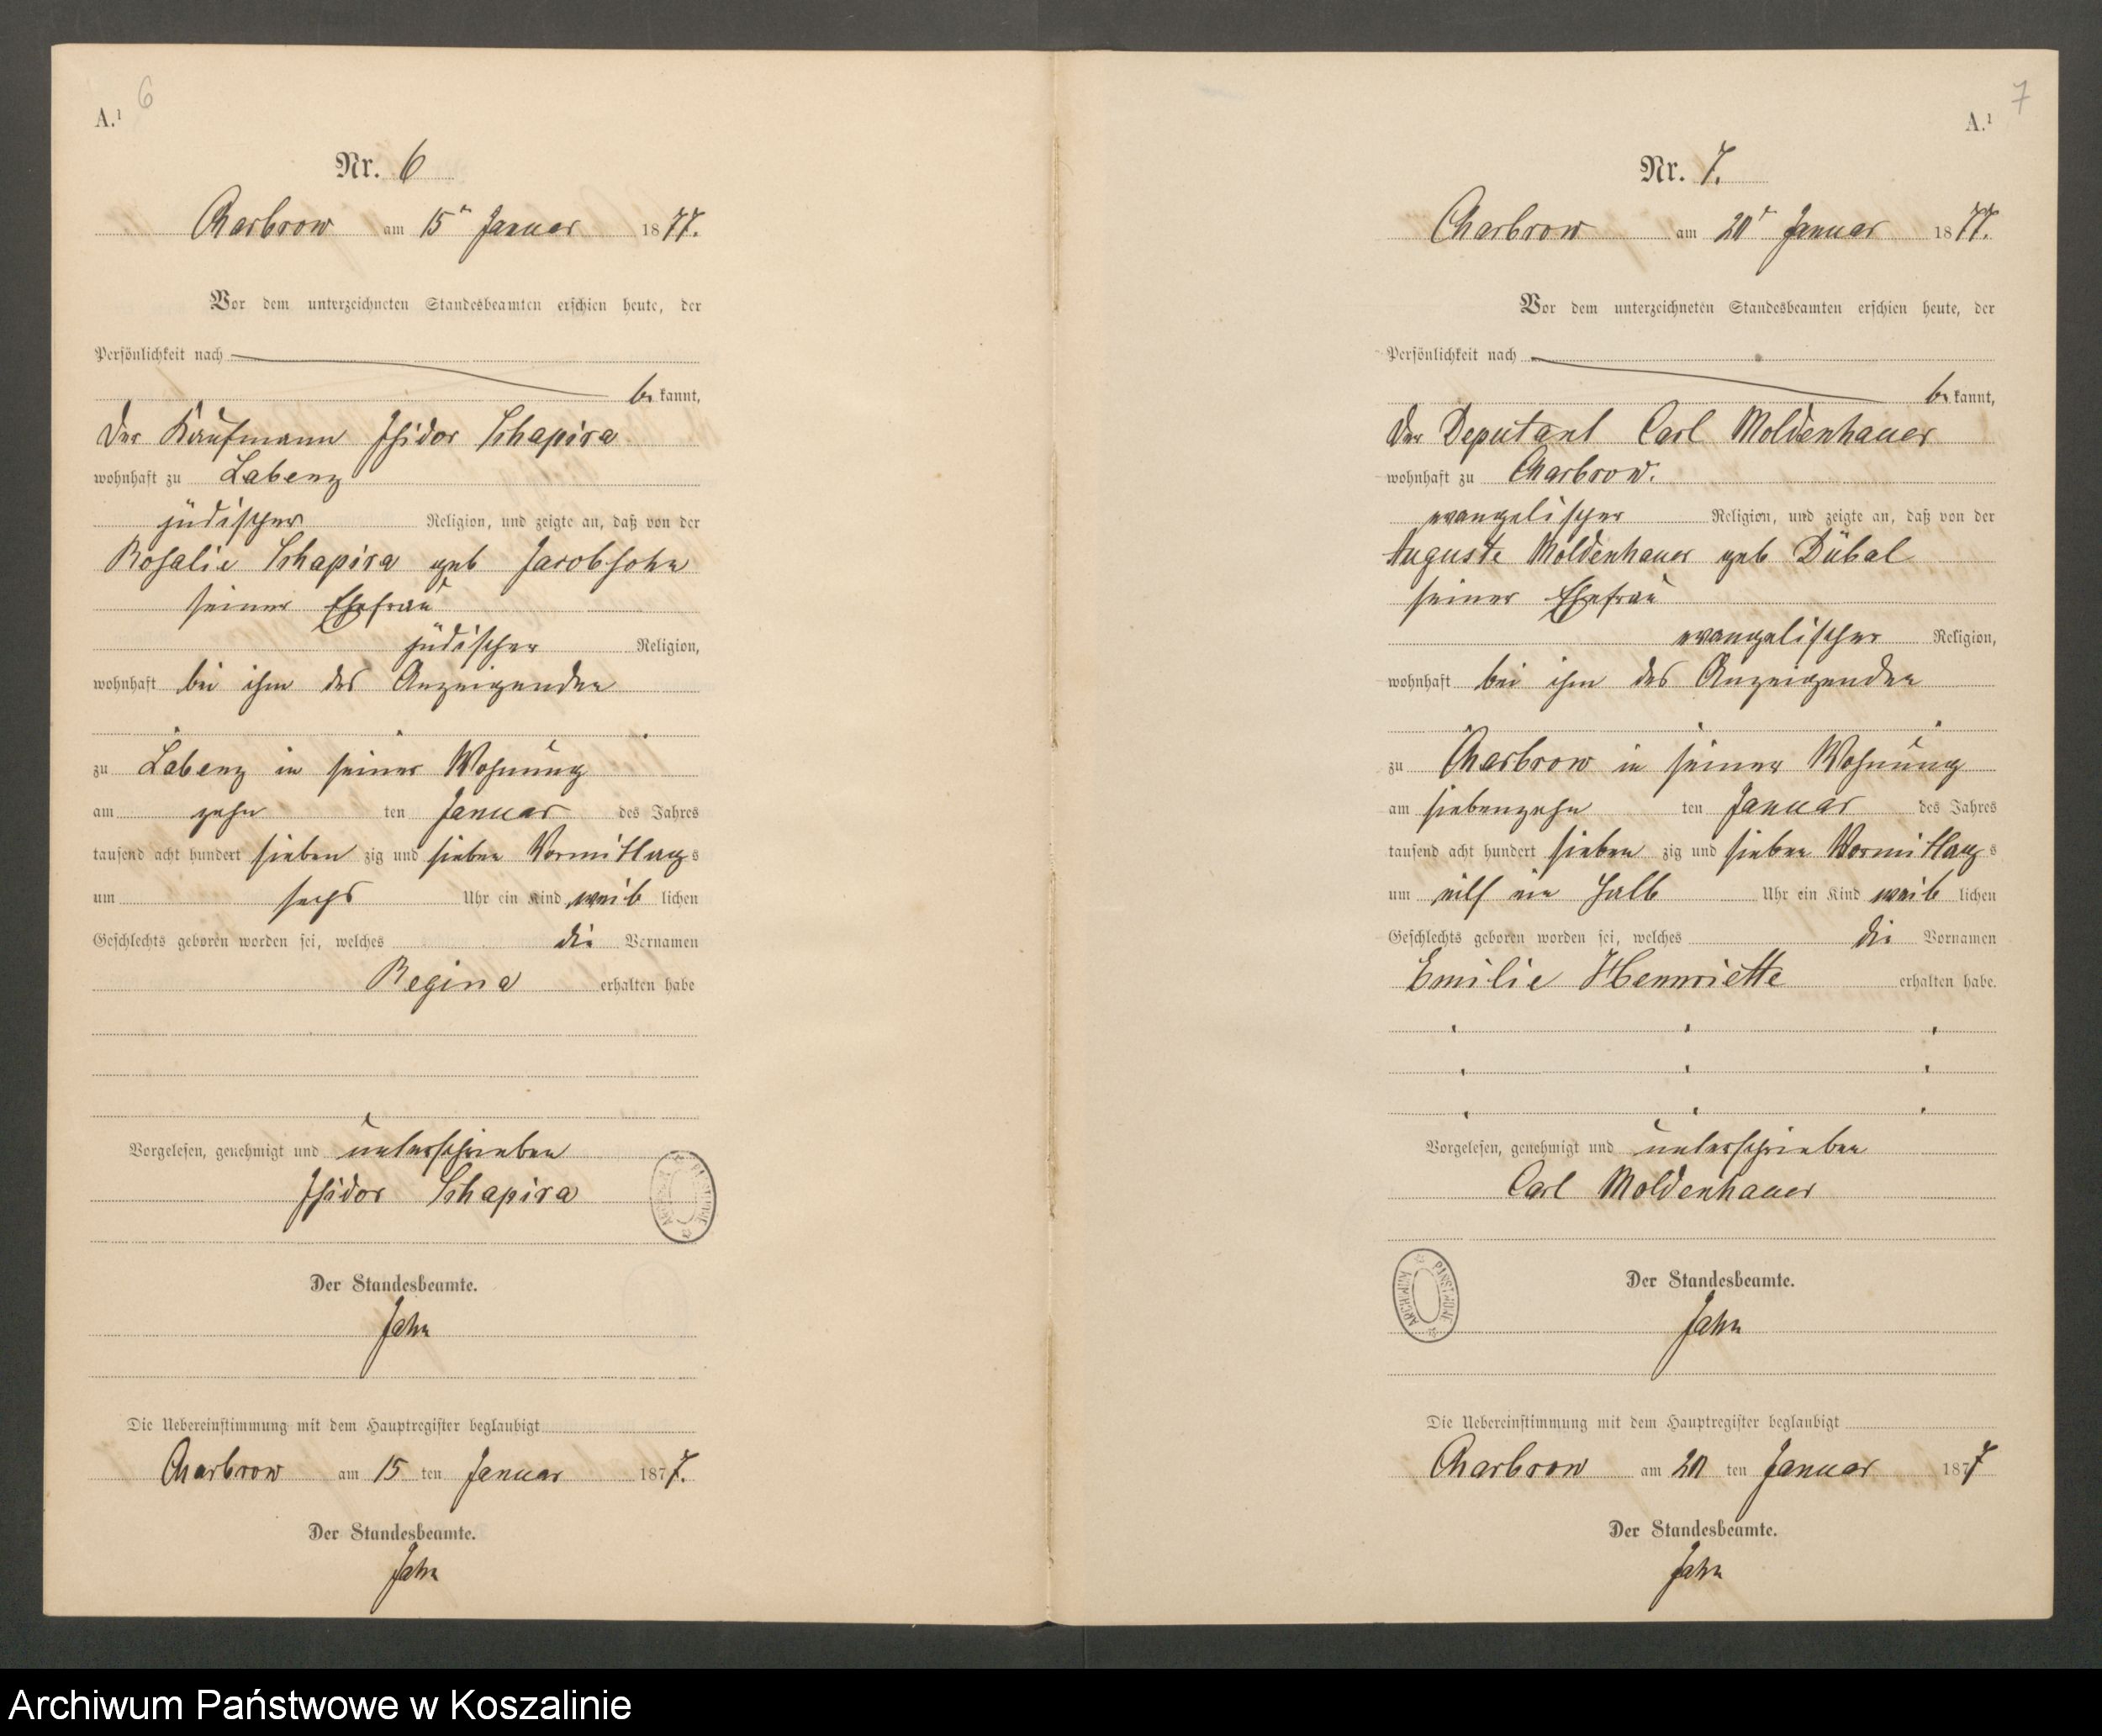 6
A.¹
Nr. 6
Charbrow am 15ᵗ Januar 1877.
Vor dem unterzeichneten Standesbeamten erschien heute, der
Persönlichkeit nach
be kannt,
der Kaufmann Isidor Schapira
wohnhaft zu Labenz
jüdischer Religion, und zeigte an, daß von der
Rosalie Schapira geb Jacobsohn
seiner Ehefrau
jüdischer Religion,
wohnhaft bei ihm des Anzeigenden
zu Labenz in seiner Wohnung
am zehn ten Januar des Jahres
tausend acht hundert sieben zig und sieben Vormittags
um sechs Uhr ein Kind weib lichen
Geschlechts geboren worden sei, welches die Vornamen
Regina erhalten habe
Vorgelesen, genehmigt und unterschrieben
Isidor Schapira
Der Standesbeamte.
Jahn
Die Uebereinstimmung mit dem Hauptregister beglaubigt
Charbrow am 15 ten Januar 1877.
Der Standesbeamte.
Jahn
7
A.¹
Nr. 7.
Charbrow am 20ᵗ Januar 1877.
Vor dem unterzeichneten Standesbeamten erschien heute, der
Persönlichkeit nach
be kannt,
der Deputant Carl Moldenhauer
wohnhaft zu Charbrow.
evangelischer Religion, und zeigte an, daß von der
Auguste Moldenhauer geb Dübal
seiner Ehefrau
evangelischer Religion,
wohnhaft bei ihm des Anzeigenden
zu Charbrow in seiner Wohnung
am siebenzehn ten Januar des Jahres
tausend acht hundert sieben zig und sieben Vormittags
um eilf ein halb Uhr ein Kind weib lichen
Geschlechts geboren worden sei, welches die Vornamen
Emilie Hennriette erhalten habe.
Vorgelesen, genehmigt und unterschrieben
Carl Moldenhauer
Der Standesbeamte.
Jahn
Die Uebereinstimmung mit dem Hauptregister beglaubigt
Charbrow am 20 ten Januar 1877
Der Standesbeamte.
Jahn
Archiwum Państwowe w Koszalinie